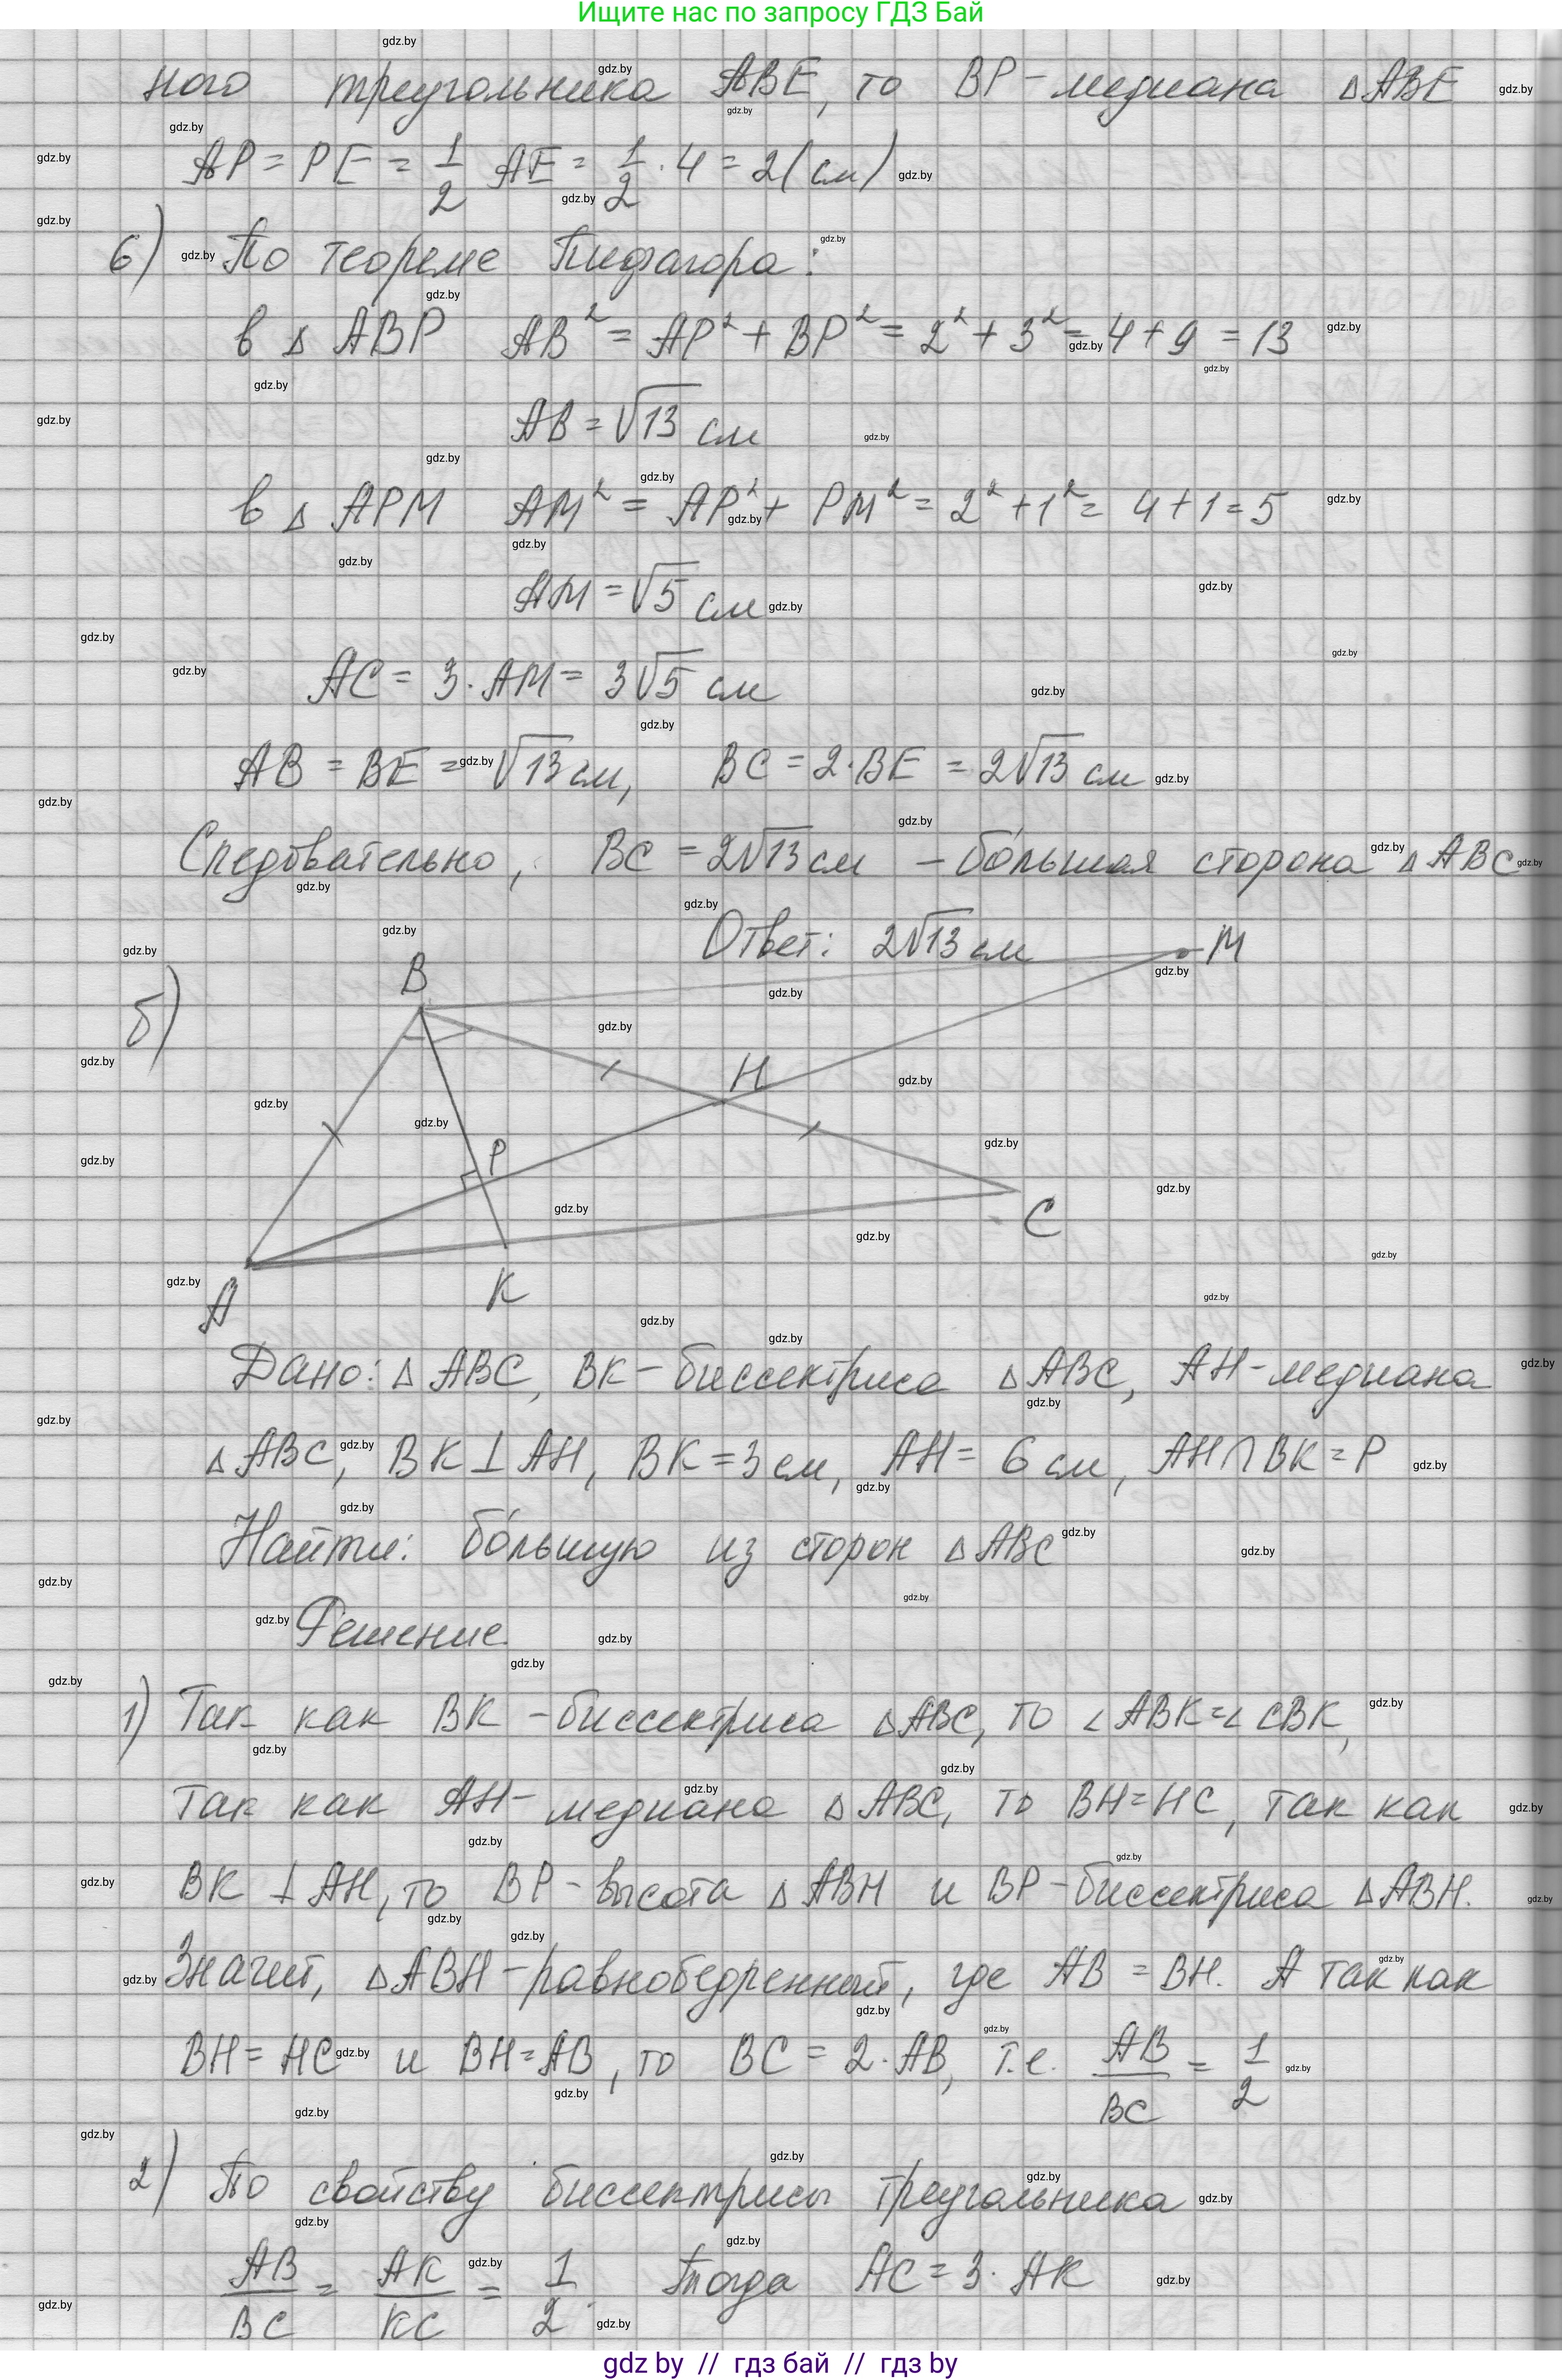 Ищите нас по запросу ГДЗ Бай
ного треугольника ABE, то BP - медиана △ABE
AP = PE = 1/2 AE = 1/2 · 4 = 2 (см)
6) По теореме Пифагора:
в △ ABP AB² = AP² + BP² = 2² + 3² = 4 + 9 = 13
AB = √13 см
в △ APM AM² = AP² + PM² = 2² + 1² = 4 + 1 = 5
AM = √5 см
AC = 3 · AM = 3√5 см
AB = BE = √13 см, BC = 2 · BE = 2√13 см
Следовательно, BC = 2√13 см – бо́льшая сторона △ABC
Ответ: 2√13 см
б)
B
M
H
P
C
A
K
Дано: △ ABC, BK – биссектриса △ABC, AH - медиана
△ABC, BK ⊥ AH, BK = 3 см, AH = 6 см, AH ∩ BK = P
Найти: бо́льшую из сторон △ABC
Решение.
1) Так как BK – биссектриса △ABC, то ∠ABK = ∠CBK,
так как AH - медиана △ABC, то BH = HC, так как
BK ⊥ AH, то BP - высота △ABH и BP - биссектриса △ABH.
Значит, △ABH - равнобедренный, где AB = BH. А так как
BH = HC и BH = AB, то BC = 2 · AB, т.е. AB/BC = 1/2
2) По свойству биссектрисы треугольника
AB/BC = AK/KC = 1/2. Тогда AC = 3 · AK
gdz by // гдз бай // гдз by